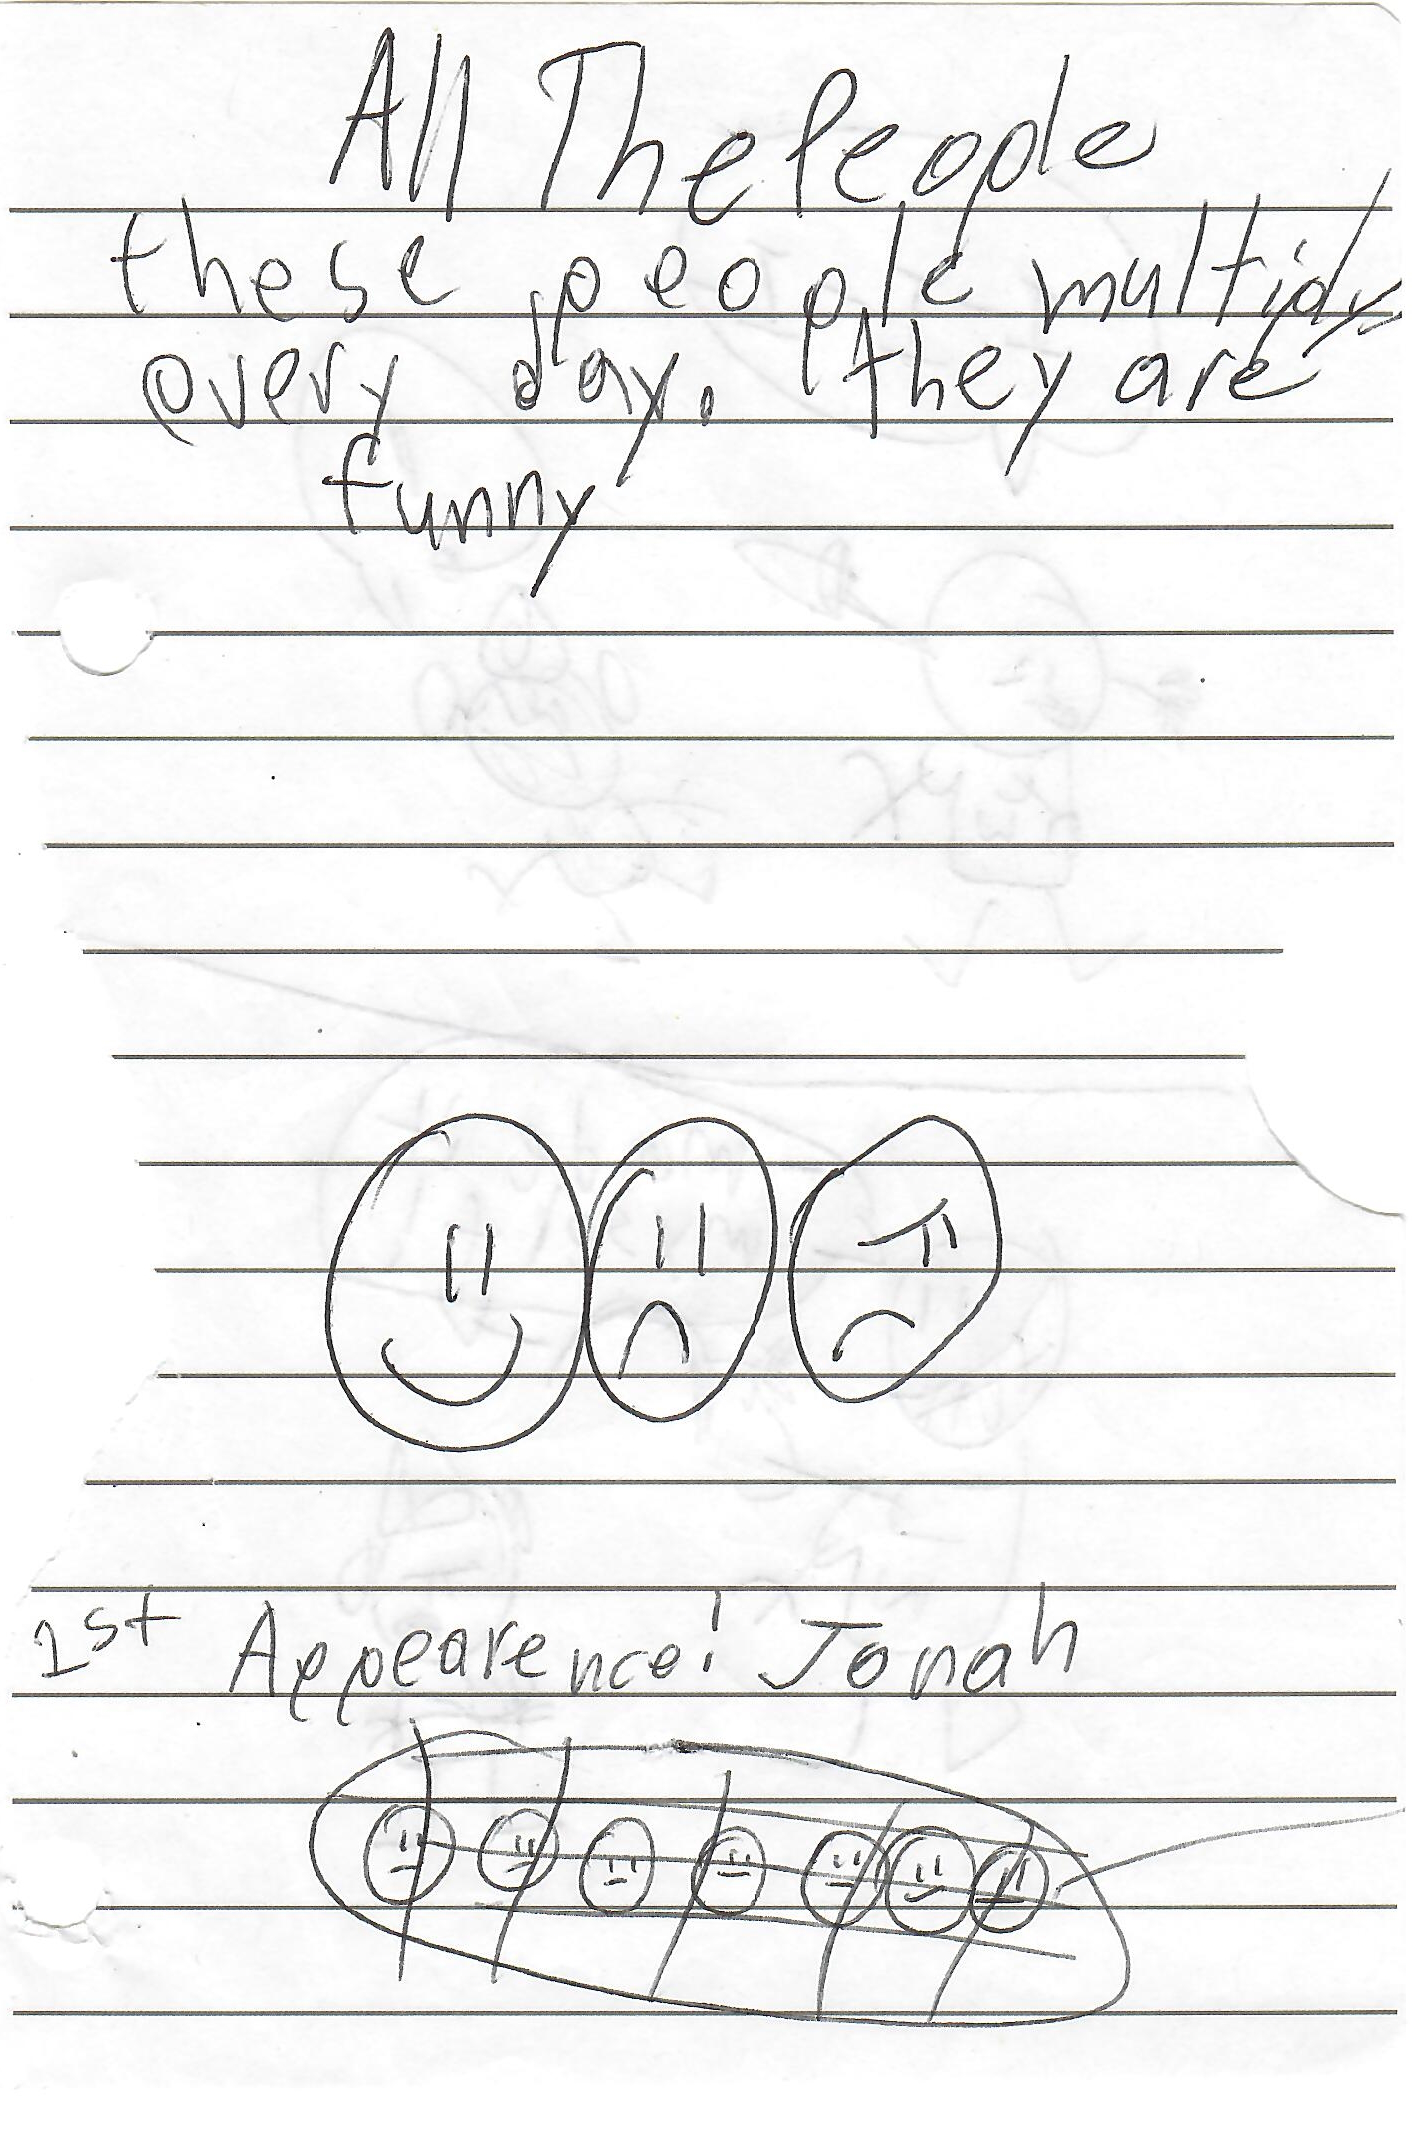 All The People
these people multiply
every day. they are
funny
1st Appearence! Jonah